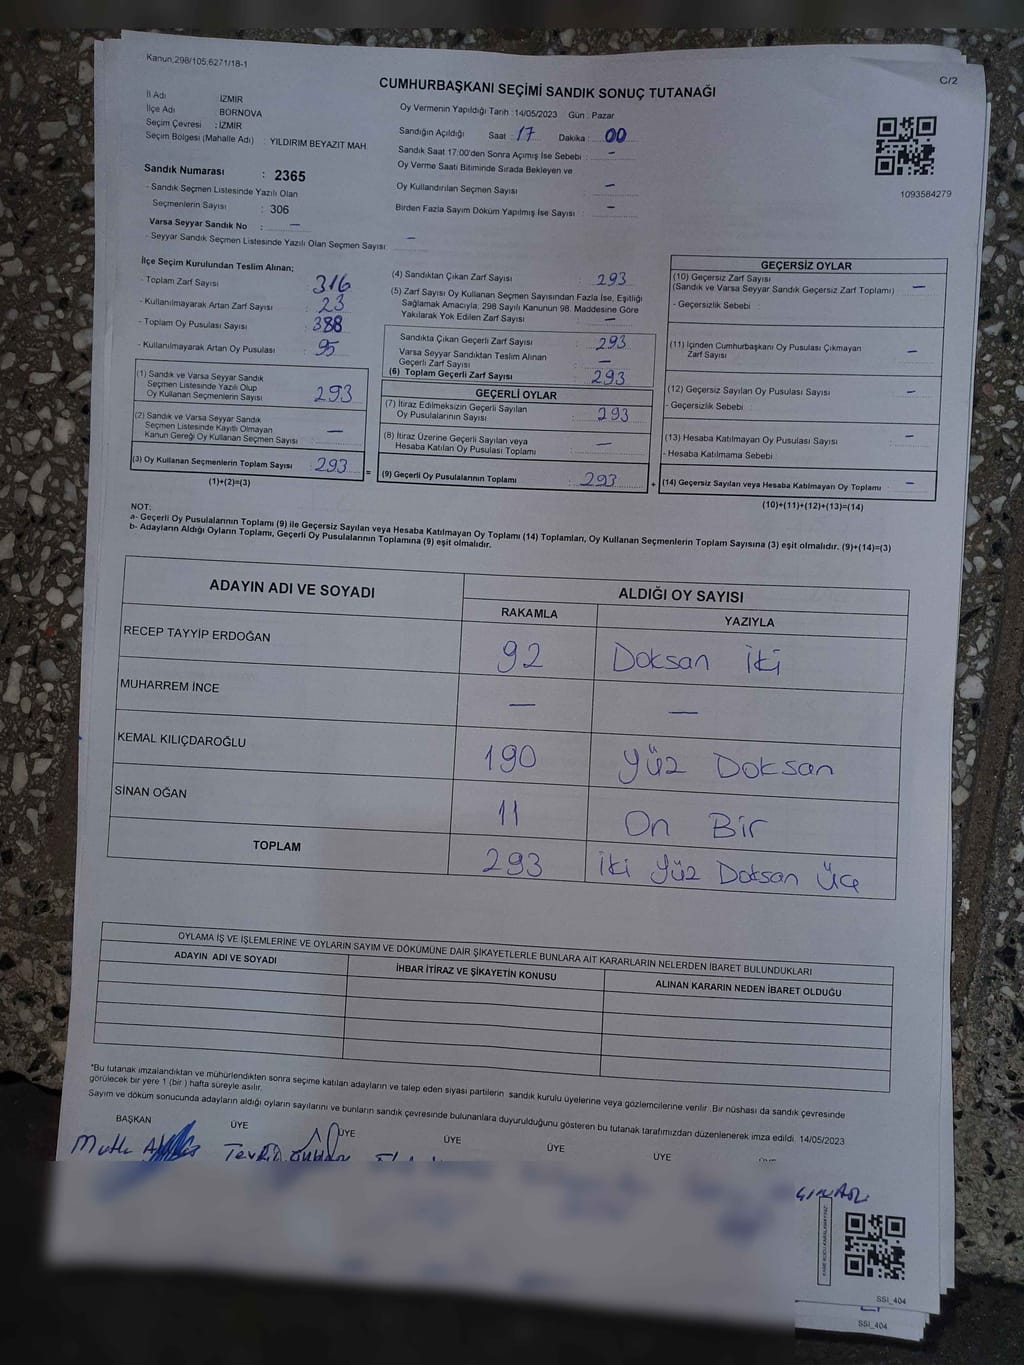 Kanun,298/105,6271/18-1
C/2
CUMHURBAŞKANI SEÇİMİ SANDIK SONUÇ TUTANAĞI
İl Adı İZMİR
İlçe Adı BORNOVA
Seçim Çevresi : İZMİR
Seçim Bölgesi (Mahalle Adı) : YILDIRIM BEYAZIT MAH
Oy Vermenin Yapıldığı Tarih : 14/05/2023 Gün : Pazar
Sandığın Açıldığı Saat : 17 Dakika : 00
Sandık Saat 17:00'den Sonra Açımış İse Sebebi : -
Oy Verme Saati Bitiminde Sırada Bekleyen ve
Oy Kullandırılan Seçmen Sayısı -
Birden Fazla Sayım Döküm Yapılmış İse Sayısı : -
1093584279
Sandık Numarası : 2365
- Sandık Seçmen Listesinde Yazılı Olan
Seçmenlerin Sayısı : 306
Varsa Seyyar Sandık No : -
- Seyyar Sandık Seçmen Listesinde Yazılı Olan Seçmen Sayısı: -
İlçe Seçim Kurulundan Teslim Alınan;
- Toplam Zarf Sayısı : 316
- Kullanılmayarak Artan Zarf Sayısı : 23
- Toplam Oy Pusulası Sayısı : 388
- Kullanılmayarak Artan Oy Pusulası : 95
(1) Sandık ve Varsa Seyyar Sandık
Seçmen Listesinde Yazılı Olup
Oy Kullanan Seçmenlerin Sayısı : 293
(2) Sandık ve Varsa Seyyar Sandık
Seçmen Listesinde Kayıtlı Olmayan
Kanun Gereği Oy Kullanan Seçmen Sayısı : -
(3) Oy Kullanan Seçmenlerin Toplam Sayısı : 293
(1)+(2)=(3)
=
(4) Sandıktan Çıkan Zarf Sayısı : 293
(5) Zarf Sayısı Oy Kullanan Seçmen Sayısından Fazla İse, Eşitliği
Sağlamak Amacıyla, 298 Sayılı Kanunun 98. Maddesine Göre
Yakılarak Yok Edilen Zarf Sayısı : -
Sandıkta Çıkan Geçerli Zarf Sayısı : 293
Varsa Seyyar Sandıktan Teslim Alınan
Geçerli Zarf Sayısı : -
(6) Toplam Geçerli Zarf Sayısı : 293
GEÇERLİ OYLAR
(7) İtiraz Edilmeksizin Geçerli Sayılan
Oy Pusulalarının Sayısı : 293
(8) İtiraz Üzerine Geçerli Sayılan veya
Hesaba Katılan Oy Pusulası Toplamı : -
(9) Geçerli Oy Pusulalarının Toplamı : 293
+
GEÇERSİZ OYLAR
(10) Geçersiz Zarf Sayısı
(Sandık ve Varsa Seyyar Sandık Geçersiz Zarf Toplamı) : -
- Geçersizlik Sebebi
(11) İçinden Cumhurbaşkanı Oy Pusulası Çıkmayan
Zarf Sayısı : -
(12) Geçersiz Sayılan Oy Pusulası Sayısı : -
- Geçersizlik Sebebi
(13) Hesaba Katılmayan Oy Pusulası Sayısı : -
- Hesaba Katılmama Sebebi :
(14) Geçersiz Sayılan veya Hesaba Katılmayan Oy Toplamı : -
(10)+(11)+(12)+(13)=(14)
NOT:
a- Geçerli Oy Pusulalarının Toplamı (9) ile Geçersiz Sayılan veya Hesaba Katılmayan Oy Toplamı (14) Toplamları, Oy Kullanan Seçmenlerin Toplam Sayısına (3) eşit olmalıdır. (9)+(14)=(3)
b- Adayların Aldığı Oyların Toplamı, Geçerli Oy Pusulalarının Toplamına (9) eşit olmalıdır.
ADAYIN ADI VE SOYADI ALDIĞI OY SAYISI
RAKAMLA YAZIYLA
RECEP TAYYİP ERDOĞAN 92 Doksan iki
MUHARREM İNCE - -
KEMAL KILIÇDAROĞLU 190 yüz Doksan
SİNAN OĞAN 11 On Bir
TOPLAM 293 iki yüz Doksan Üç
OYLAMA İŞ VE İŞLEMLERİNE VE OYLARIN SAYIM VE DÖKÜMÜNE DAİR ŞİKAYETLERLE BUNLARA AİT KARARLARIN NELERDEN İBARET BULUNDUKLARI
ADAYIN ADI VE SOYADI İHBAR İTİRAZ VE ŞİKAYETİN KONUSU ALINAN KARARIN NEDEN İBARET OLDUĞU
"Bu tutanak imzalandıktan ve mühürlendikten sonra seçime katılan adayların ve talep eden siyasi partilerin sandık kurulu üyelerine veya gözlemcilerine verilir. Bir nüshası da sandık çevresinde
görülecek bir yere 1 (bir ) hafta süreyle asılır.
Sayım ve döküm sonucunda adayların aldığı oyların sayılarını ve bunların sandık çevresinde bulunanlara duyurulduğunu gösteren bu tutanak tarafımızdan düzenlenerek imza edildi. 14/05/2023
BAŞKAN ÜYE ÜYE ÜYE ÜYE ÜYE
SSI_404
SSI_404